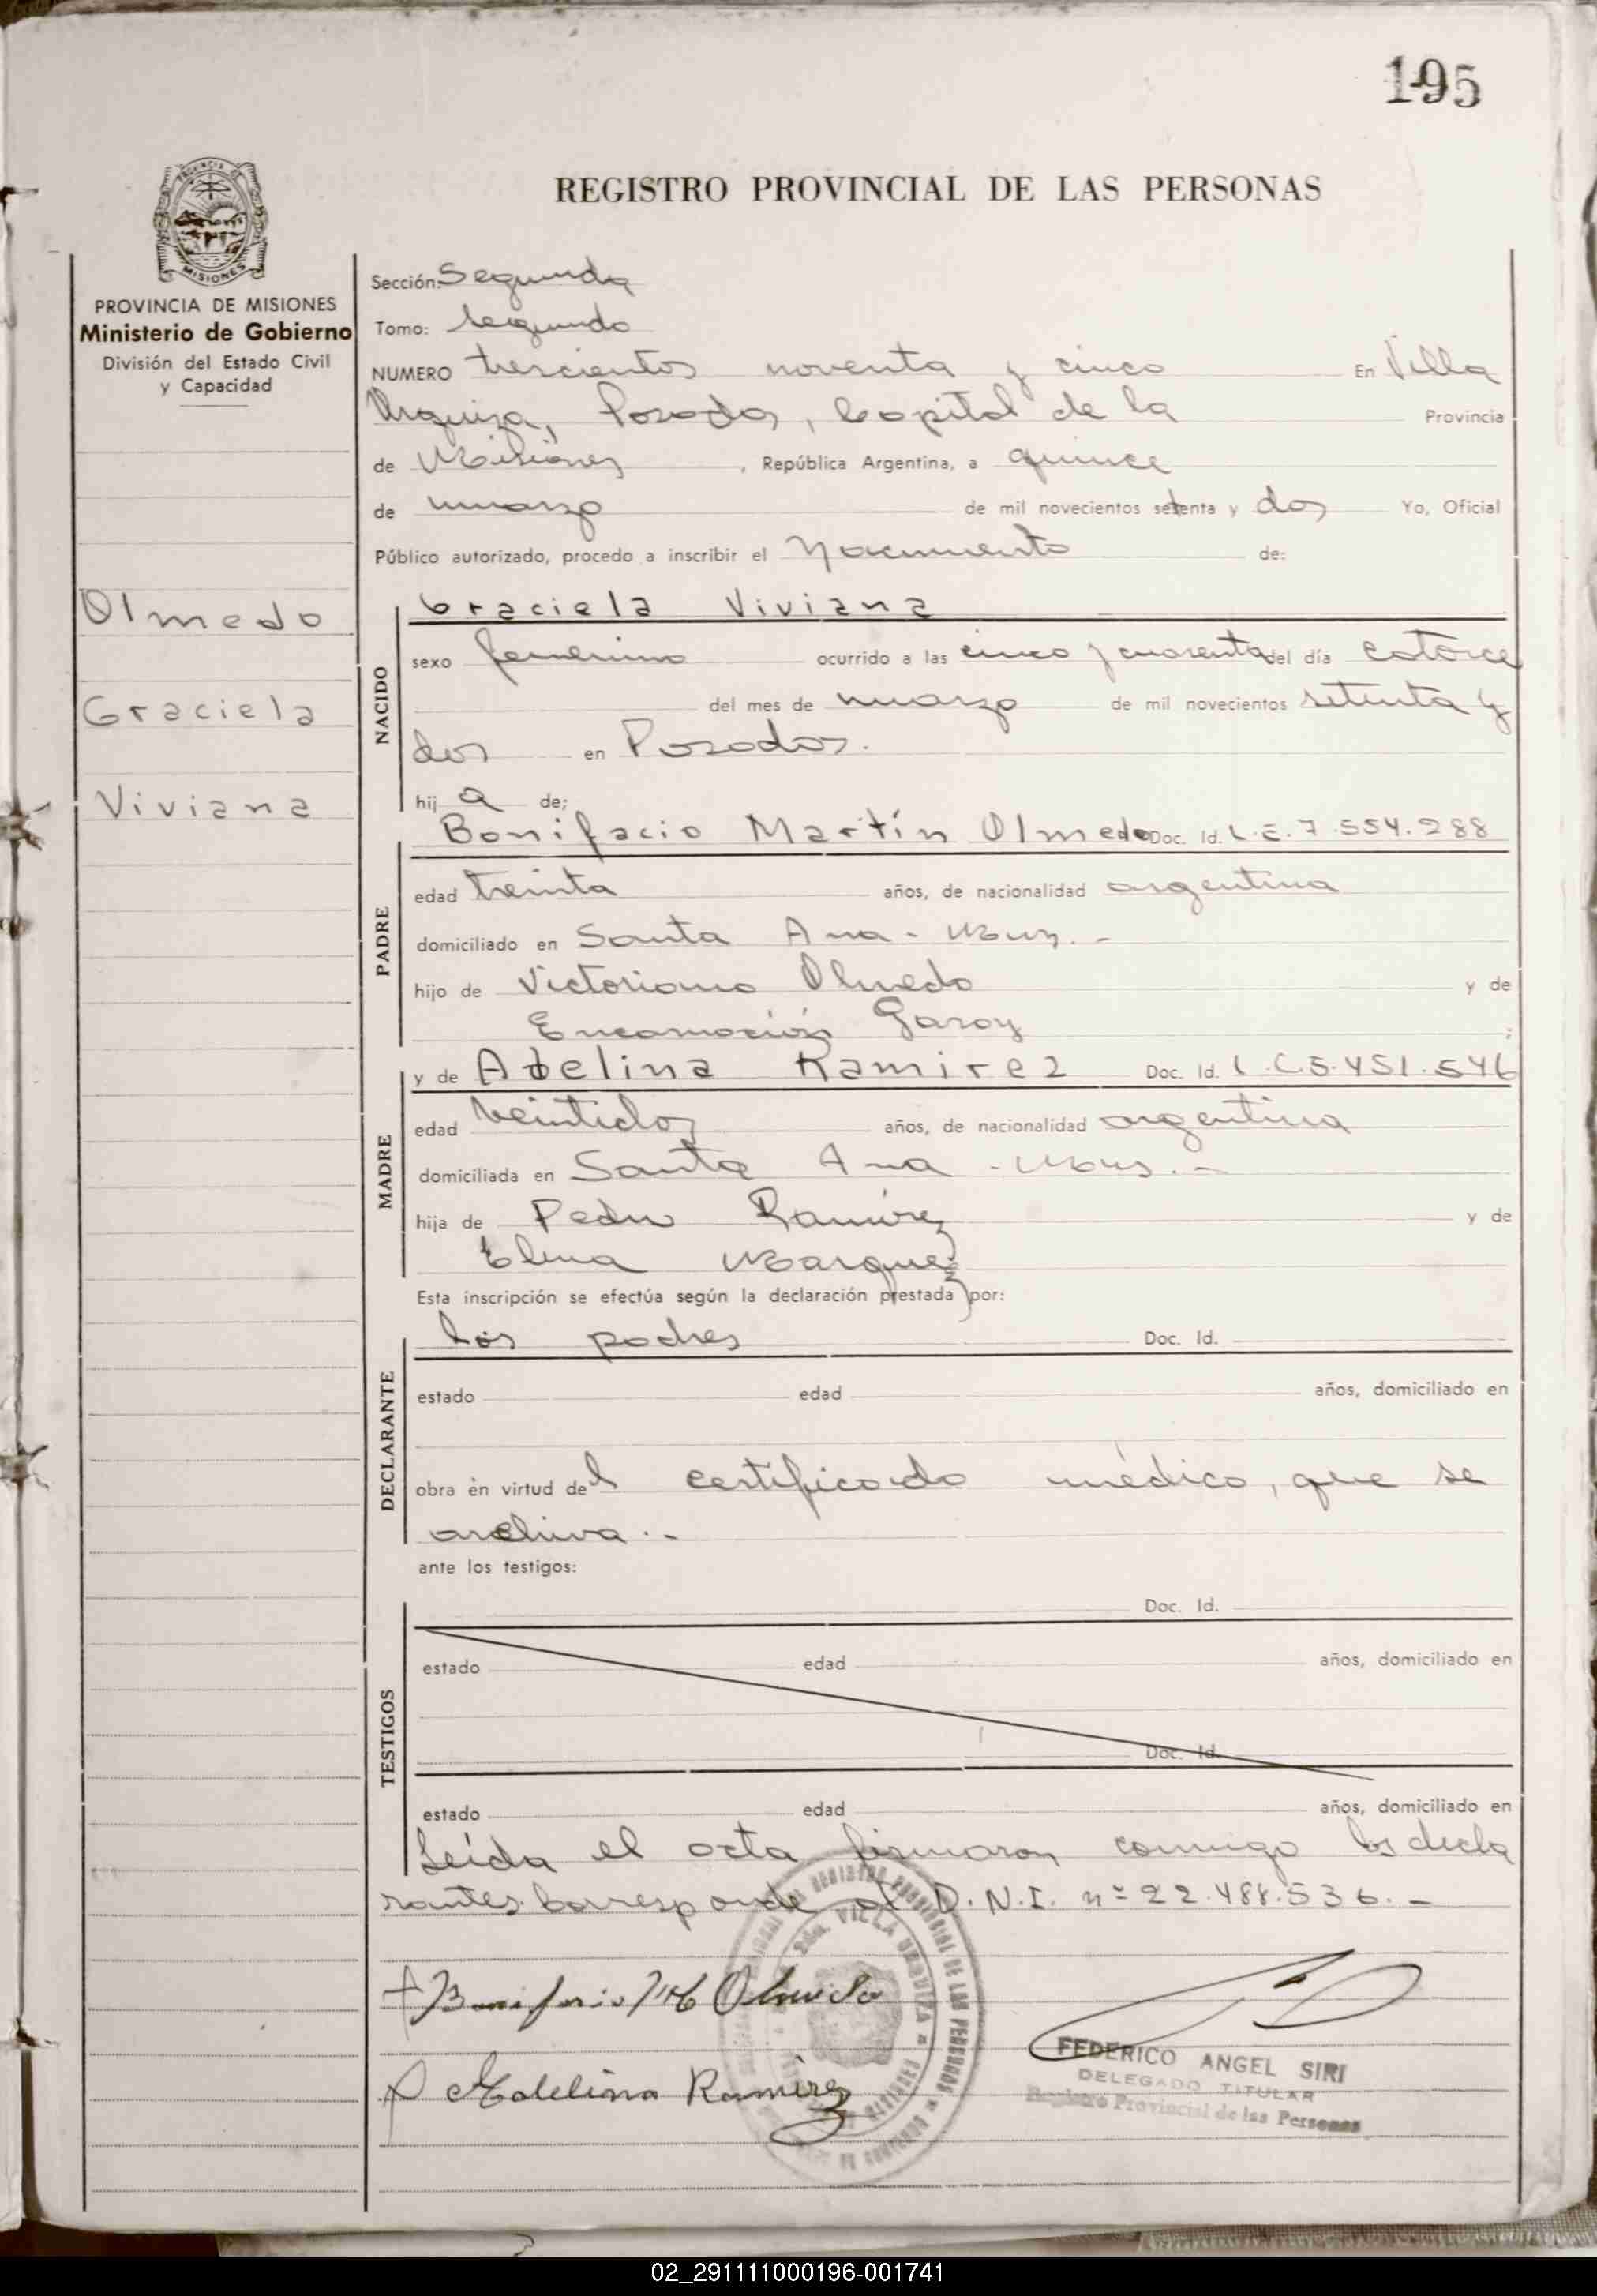 195
REGISTRO PROVINCIAL DE LAS PERSONAS
MISIONES
PROVINCIA DE MISIONES
Ministerio de Gobierno
División del Estado Civil
y Capacidad
Olmedo
Graciela
Viviana
Sección: Segunda
Tomo: Segundo
NUMERO trescientos noventa y cinco En Villa
Urquiza, Posadas, Capital de la Provincia
de Misiones, República Argentina, a quince
de marzo de mil novecientos setenta y dos Yo, Oficial
Público autorizado, procedo a inscribir el Nacimiento de:
NACIDO
Graciela Viviana
sexo femenino ocurrido a las cinco y cuarenta del día catorce
del mes de marzo de mil novecientos setenta y
dos en Posadas.
hij a de;
PADRE
Bonifacio Martín Olmedo Doc. Id. L.E. 7.554.288
edad treinta años, de nacionalidad argentina
domiciliado en Santa Ana - Mnes. -
hijo de Victoriano Olmedo y de
Encarnación Garay ;
MADRE
y de Adelina Ramirez Doc. Id. L.C. 5.451.546
edad veintidos años, de nacionalidad argentina
domiciliada en Santa Ana - Mnes. -
hija de Pedro Ramírez y de
Elena Marquez
Esta inscripción se efectúa según la declaración prestada por:
DECLARANTE
los padres Doc. Id.
estado edad años, domiciliado en
obra en virtud del certificado médico, que se
archiva. -
ante los testigos:
TESTIGOS
Doc. Id.
estado edad años, domiciliado en
Doc. Id.
estado edad años, domiciliado en
Leída el acta firmaron conmigo los decla
rantes. Corresponde al D.N.I. nº 22.488.536. -
Olmedo
Adelina Ramirez
VILLA URQUIZA
FEDERICO ANGEL SIRI
DELEGADO TITULAR
Registro Provincial de las Personas
02_291111000196-001741